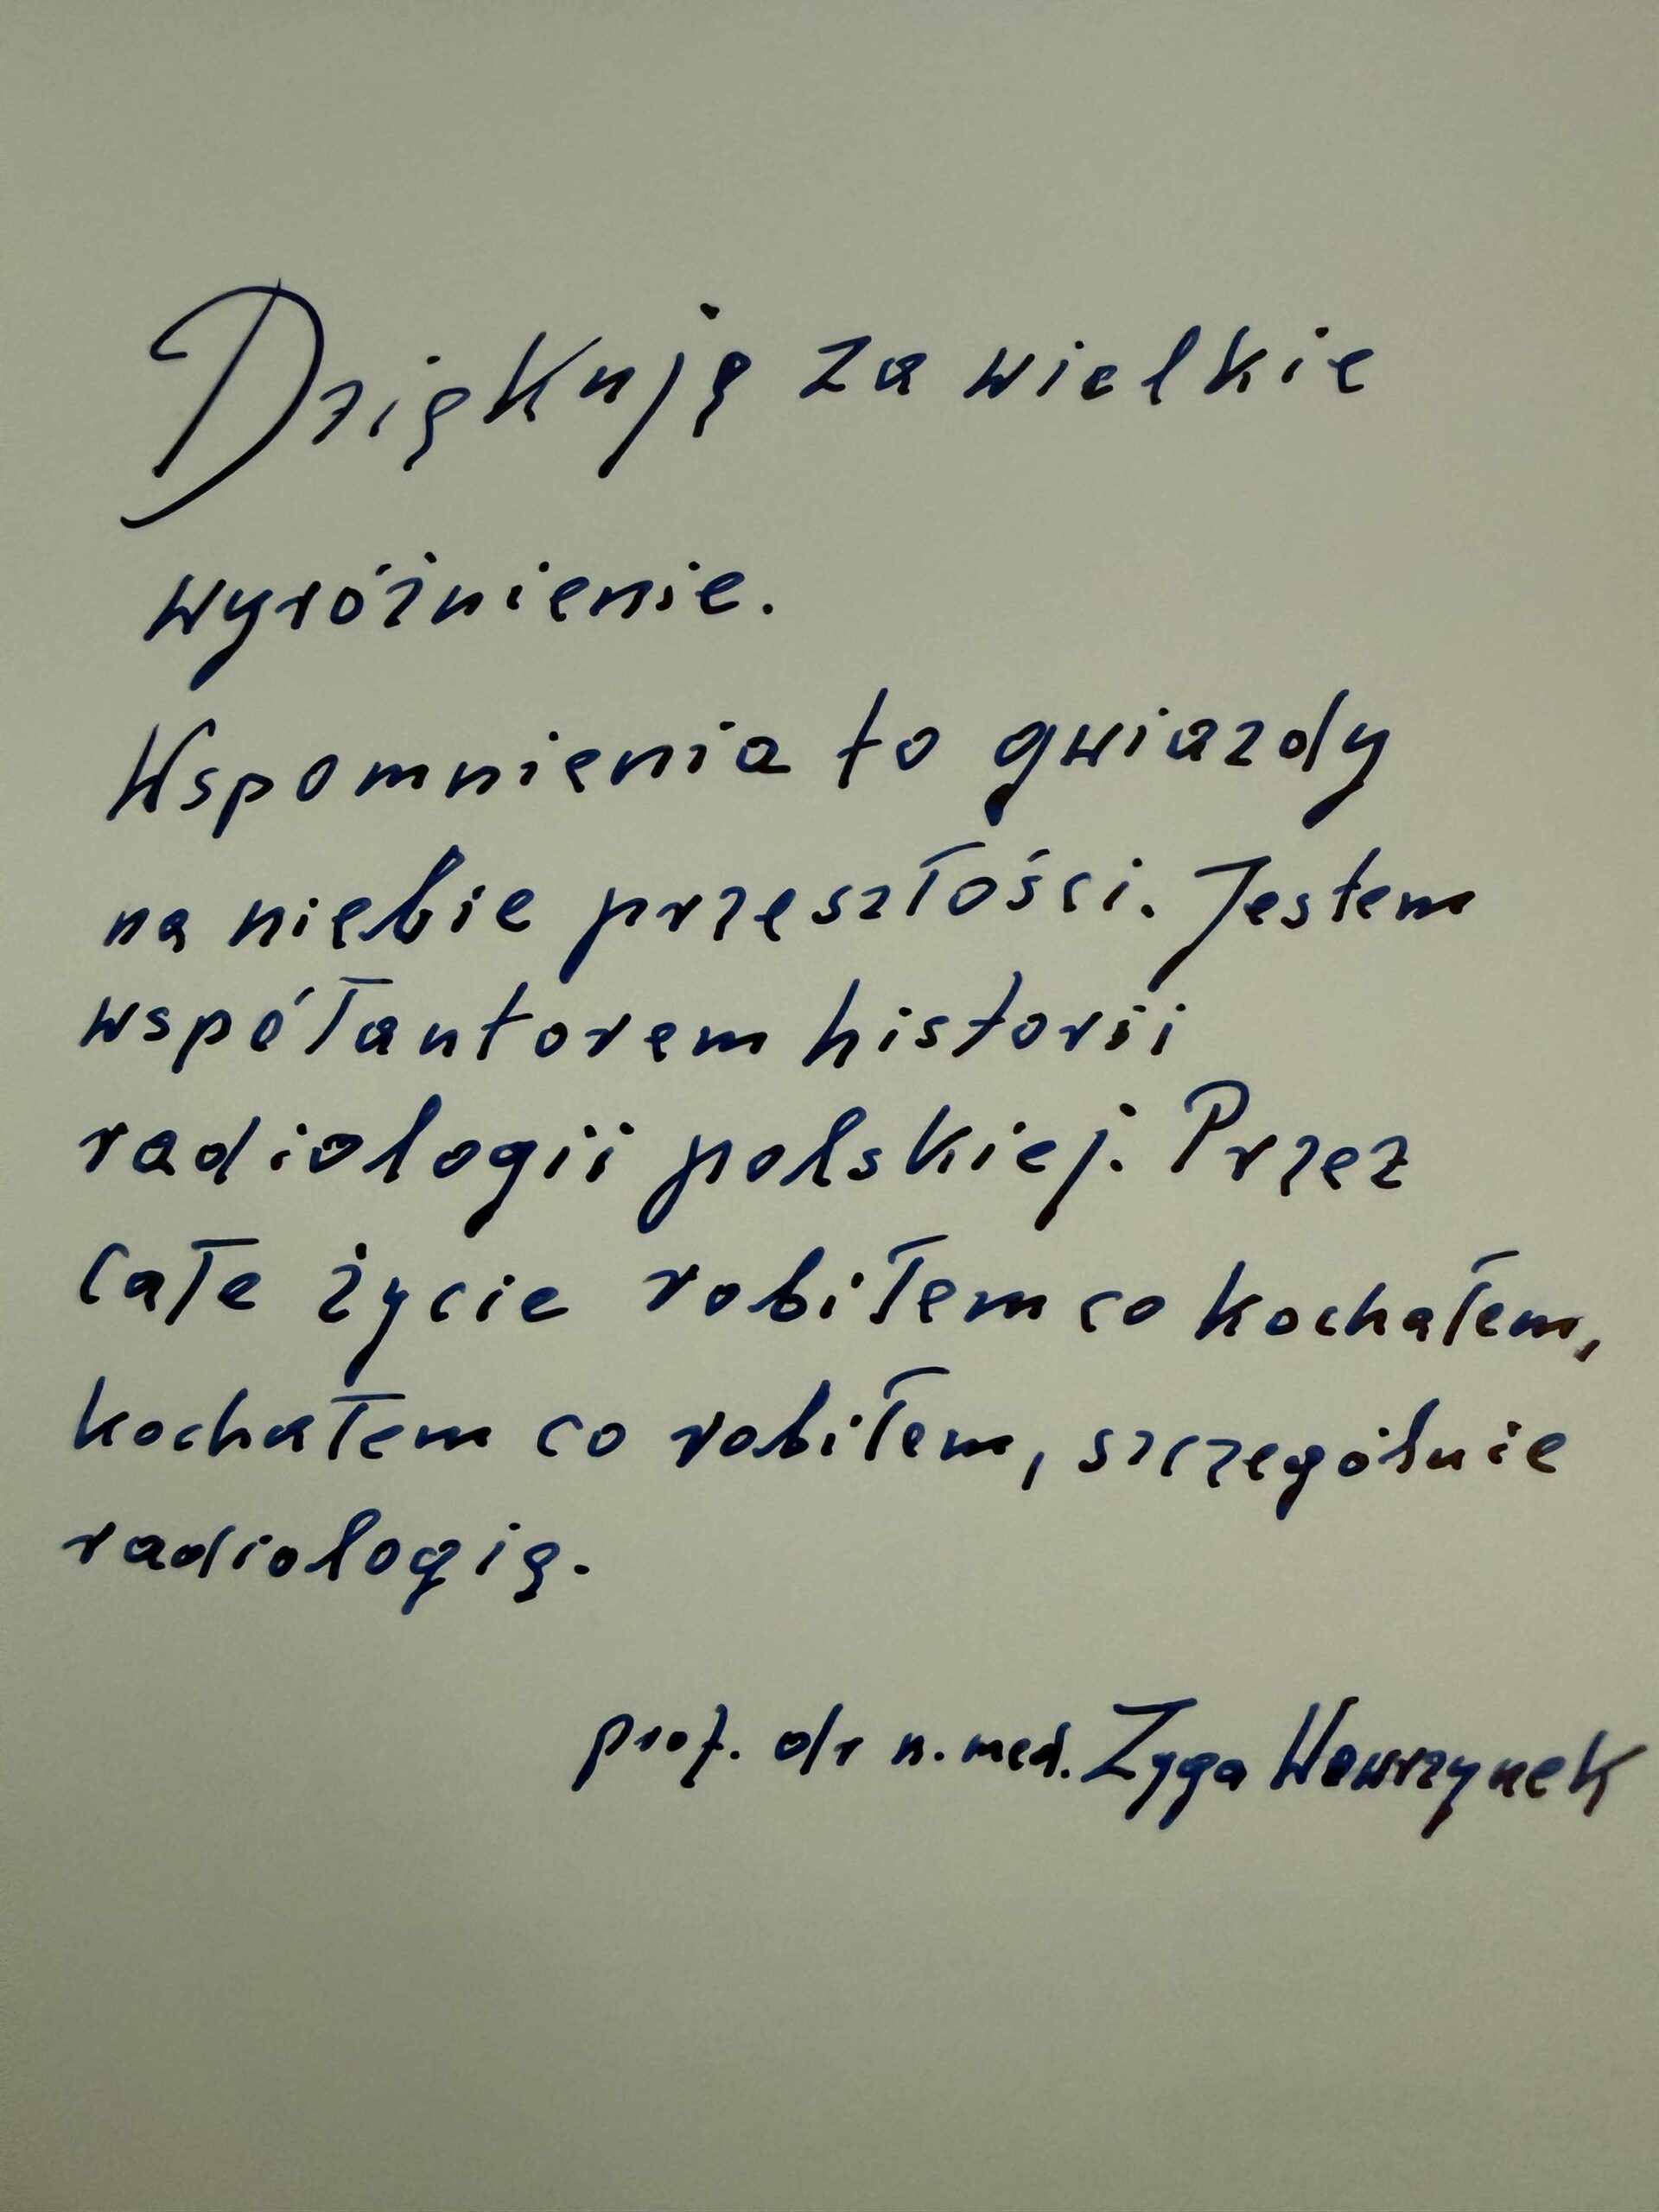 Dziękuję za wielkie
wyróżnienie.
Wspomnienia to gwiazdy
na niebie przeszłości. Jestem
współautorem historii
radiologii polskiej. Przez
całe życie robiłem co kochałem,
kochałem co robiłem, szczególnie
radiologię.
prof. dr n. med. Zyga Wawrzynek